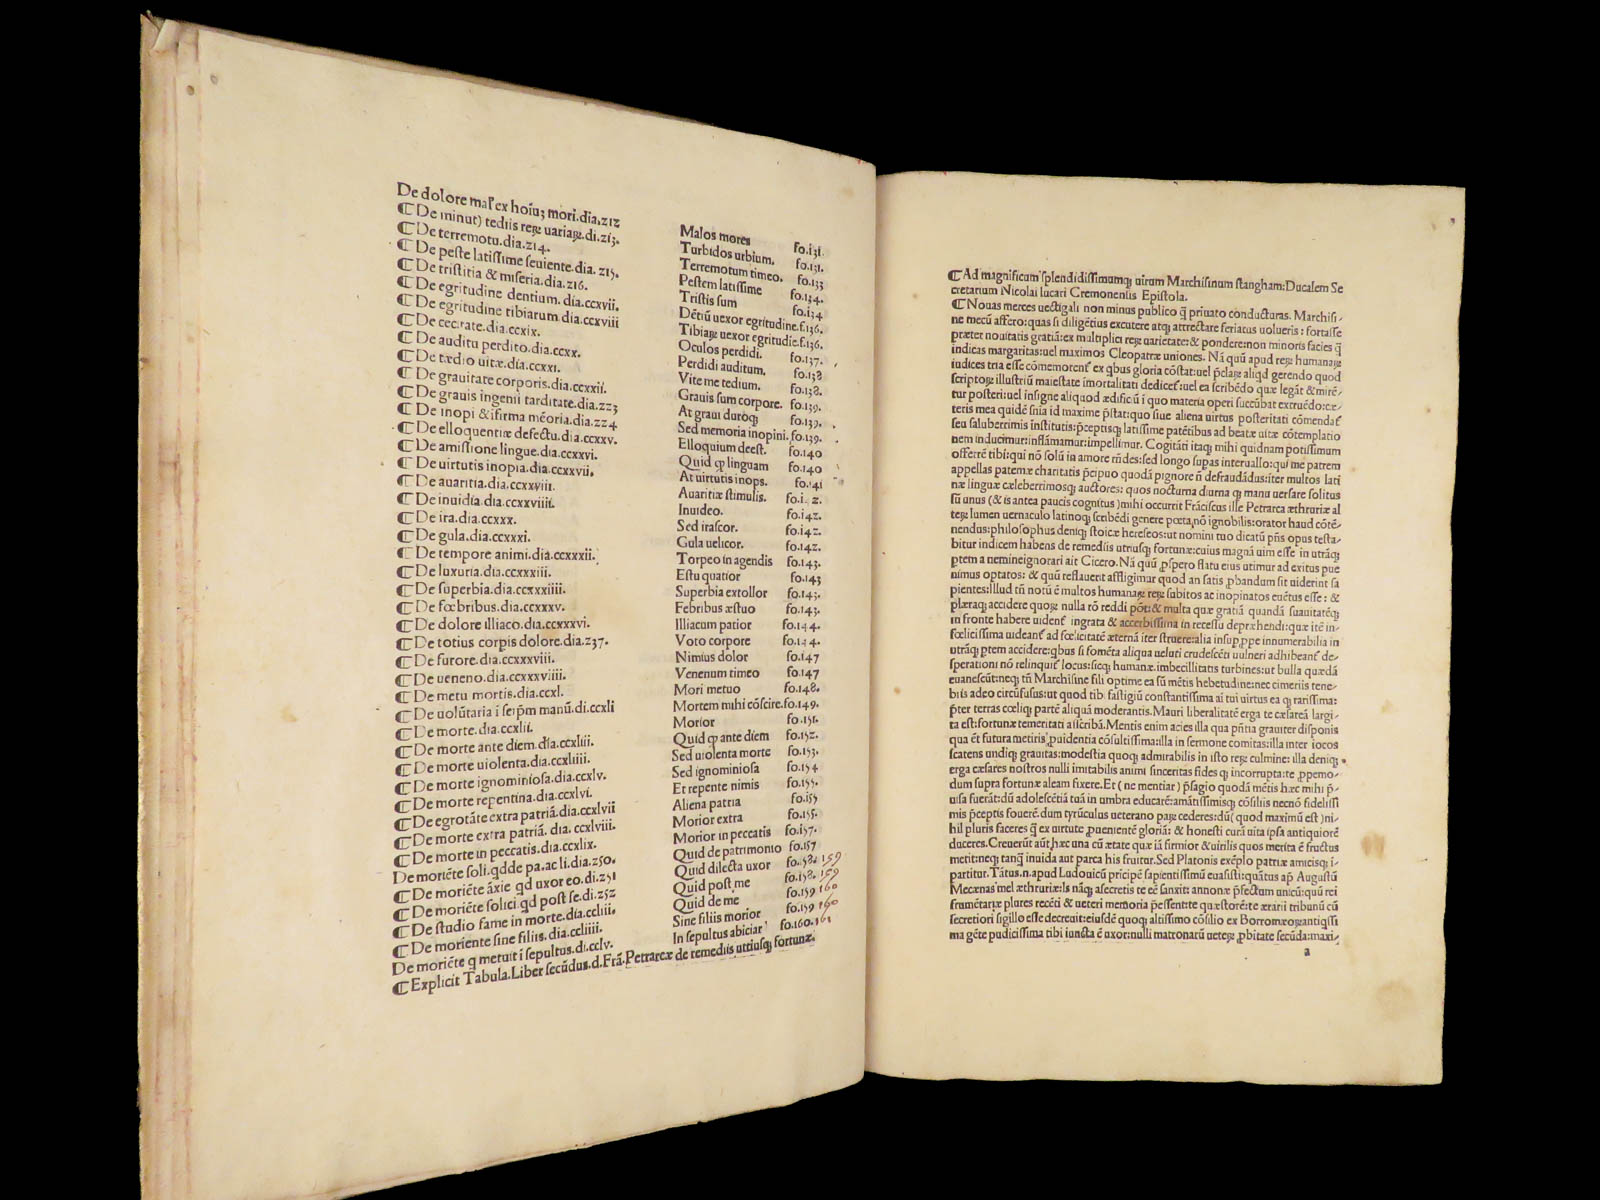 De dolore mal' ex hoiũ; mori.dia.212 Malos mores fo.131.
¶De minut) tediis reꝝ uariaꝝ.di.213. Turbidos urbium. fo.131.
¶De terremotu.dia.214. Terremotum timeo. fo.133
¶De peste latissime seuiente.dia. 215. Pestem latissime fo.134.
¶De tristitia & miseria.dia.216. Tristis sum fo.134
¶De egritudine dentium.dia.ccxvii. Dẽtiũ uexor egritudine.f.136.
¶De egritudine tibiarum.dia.ccxviii Tibiaꝝ uexor egritudie.f.136.
¶De cecitate.dia.ccxix. Oculos perdidi. fo.137.
¶De auditu perdito.dia.ccxx. Perdidi auditum. fo.138
¶De tædio uitæ.dia.ccxxi. Vite me tedium. fo.138.
¶De grauitate corporis.dia.ccxxii. Grauis sum corpore. fo.139.
¶De grauis ingenii tarditate.dia.223 At graui duroq; fo.139.
¶De inopi & ifirma mẽoria.dia.224 Sed memoria inopini. fo.139.
¶De elloquentiæ defectu.dia.ccxxv. Elloquium deest. fo.140
¶De amissione lingue.dia.ccxxvi. Quid ꝙ linguam fo.140
¶De uirtutis inopia.dia.ccxxvii. At uirtutis inops. fo.141
¶De auaritia.dia.ccxxviii. Auaritiæ stimulis. fo.142.
¶De inuidia.dia.ccxxviiii. Inuideo. fo.142.
¶De ira.dia.ccxxx. Sed irascor. fo.142.
¶De gula.dia.ccxxxi. Gula uelicor. fo.142.
¶De tempore animi.dia.ccxxxii. Torpeo in agendis fo.143.
¶De luxuria.dia.ccxxxiii. Estu quatior fo.143
¶De superbia.dia.ccxxxiiii. Superbia extollor fo.143.
¶De fœbribus.dia.ccxxxv. Febribus æstuo fo.143.
¶De dolore illiaco.dia.ccxxxvi. Illiacum patior fo.144.
¶De totius corpis dolore.dia.237. Voto corpore fo.144.
¶De furore.dia.ccxxxviii. Nimius dolor fo.147
¶De ueneno.dia.ccxxxviiii. Venenum timeo fo.147
¶De metu mortis.dia.ccxl. Mori metuo fo.148.
¶De uolũtaria i seip̃m manũ.di.ccxli Mortem mihi cõscire.fo.149.
¶De morte.dia.ccxlii. Morior fo.151.
¶De morte ante diem.dia.ccxliii. Quid ꝙ ante diem fo.152.
¶De morte uiolenta.dia.ccxliiii. Sed uiolenta morte fo.153.
¶De morte ignominiosa.dia.ccxlv. Sed ignominiosa fo.154
¶De morte repentina.dia.ccxlvi. Et repente nimis fo.155.
¶De egrotãte extra patriã.dia.ccxlvii Aliena patria fo.155
¶De morte extra patriã. dia. ccxlviii. Morior extra fo.155.
¶De morte in peccatis.dia.ccxlix. Morior in peccatis fo.157.
De moriẽte soli.qdde pa.ac li.dia.250. Quid de patrimonio fo.157
¶De moriẽte ãxie qd uxor eo.di.251 Quid dilecta uxor fo.158. 159
¶De moriẽte solici qd post se.di.252 Quid post me fo.158. 159
¶De studio fame in morte.dia.ccliii. Quid de me fo.159 160
¶De moriente sine filiis.dia.ccliiii. Sine filiis morior fo.159 160
De moriẽte q metuit i sepultus.di.cclv. In sepultus abiciar fo.160.161
¶Explicit Tabula.Liber secũdus.d.Frã.Petrarcæ de remediis utriusq; fortunæ.
¶Ad magnificum splendidissimumq; uirum Marchisinum stangham:Ducalem Se
cretarium Nicolai lucari Cremonensis Epistola.
¶Nouas merces uectigali non minus publico q̃ priuato conducturas. Marchisi-
ne mecũ affero:quas si diligẽtius excutere atq; attrectare feriatus uolueris : fortasse
præter nouitatis gratiã:ex multiplici reꝝ uarietate:& pondere:non minoris facies q̃
indicas margaritas:uel maximos Cleopatræ uniones. Nã quũ apud reꝝ humanaꝝ
iudices tria esse cõmemorent' ex qbus gloria cõstat:uel p̃clare aliqd gerendo quod
scriptoꝝ illustriũ maiestate imortalitati dedicet':uel ea scribẽdo quæ legãt & mirẽ-
tur posteri:uel insigne aliquod ædificiũ i quo materia operi succũbat extruẽdo:cæ-
teris mea quidẽ snia id maxime p̃stat:quo siue aliena uirtus posteritati cõmendat'
seu saluberrimis institutis:p̃ceptisq; latissime patẽtibus ad beatæ uitæ cõtemplatio
nem inducimur:inflãmamur:impellimur. Cogitãti itaq; mihi quidnam potissimum
offerrẽ tibi:qui nõ solũ in amore
appellas paternæ charitatis p̃cipuo quodã pignore
næ linguæ cæleberrimosq; auctores: quos nocturna diurna q; manu uersare solitus
sũ unus (& is antea paucis cognitus) mihi occurrit Frãciscus ille Petrarca æthruriæ al
teꝝ lumen uernaculo latinoq; scribẽdi genere poeta,nõ ignobilis:orator haud cõtẽ-
nendus:philosophus deniq; stoicæ hereseos:ut nomini tuo dicatũ p̃ñs opus testa-
bitur indicem habens de remediis utriusq; fortunæ:cuius magnã uim esse in utrãq;
ptem a nemineignorari ait Cicero. Nã quũ ꝓspero flatu eius utimur ad exitus pue
nimus optatos: & quũ reflauerit affligimur quod an satis ꝓbandum sit uiderint sa
pientes:Illud tñ notũ ẽ multos humanaꝝ reꝝ subitos ac inopinatos euẽtus esse : &
plæraq; accidere quoꝝ nulla rõ reddi põt:& multa quæ gratiã quandã suauitatẽq;
in fronte habere uident' ingrata & accerbissima in recessu depræhendi:quæ itẽ in-
fœlicissima uideant' ad fœlicitatẽ æternã iter struere:alia insup,ppe innumerabilia in
utrãq; ptem accidere:qbus si fomẽta aliqua ueluti crudescẽti uulneri adhibeant' de-
sperationi nõ relinquit' locus:sicq; humanæ.imbecillitatis turbines:ut bulla quædã
euanescũt:neq; tñ Marchisine fili optime ea sũ mẽtis hebetudine:nec cimeriis tene-
briis adeo circũfusus:ut quod tibi fastigiũ constantissima aĩ tui uirtus ea q; rarissima:
p̃ter terras cœliq; partẽ aliquã moderantis. Mauri liberalitate erga te cæsarea largi-
ta est:fortunæ temeritati asscribã. Mentis enim acies illa qua p̃ñtia grauiter disponis
qua ẽt futura metiris ꝓuidentia cõsultissima:illa in sermone comitas:illa inter iocos
scatens undiq; grauitas:modestia quoq; admirabilis in isto reꝝ culmine: illa deniq;
erga cæsares nostros nulli imitabilis animi sinceritas fides q; incorrupta:te ꝓpemo-
dum supra fortunæ aleam fixere. Et ( ne mentiar ) p̃sagio quodã mẽtis hæc mihi p̃-
uisa fuerãt:dũ adolescẽtiã tuã in umbra educarẽ:amãtissimisq; cõsiliis necnõ fidelissi
mis p̃ceptis fouerẽ.dum tyrũculus ueterano parẽ cederes:dũ( quod maximũ est )ni-
hil pluris faceres q̃ ex uirtute ꝓuenientẽ gloriã: & honesti curã uita ipsa antiquiorẽ
duceres.Creuerũt aũt hæc una cũ ætate quæ iã firmior & uirilis quos merita ẽ fructus
metit:neq; tanq̃ inuida aut parca his fruitur. Sed Platonis exẽplo patriæ amicisq; i-
partitur. Tãtus.n.apud Ludouicũ pricipẽ sapientissimũ euasisti:quãtus ap' Augustũ
Mecænas mel æthruriæ:Is nãq; asecretis te eẽ sanxit: annonæ p̃fectum unicũ:quũ rei
frumẽtariæ plures recẽti & ueteri memoria p̃essentite quæstorẽ:ite ærarii tribunũ cũ
secretiori sigillo esse decreuit:eiusdẽ quoq; altissimo cõsilio ex Borromæoꝝ antiqssi
ma gẽte pudicissima tibi iuncta ẽ uxor:nulli matronarũ ueteꝝ ꝓbitate secũda:maxi-
a